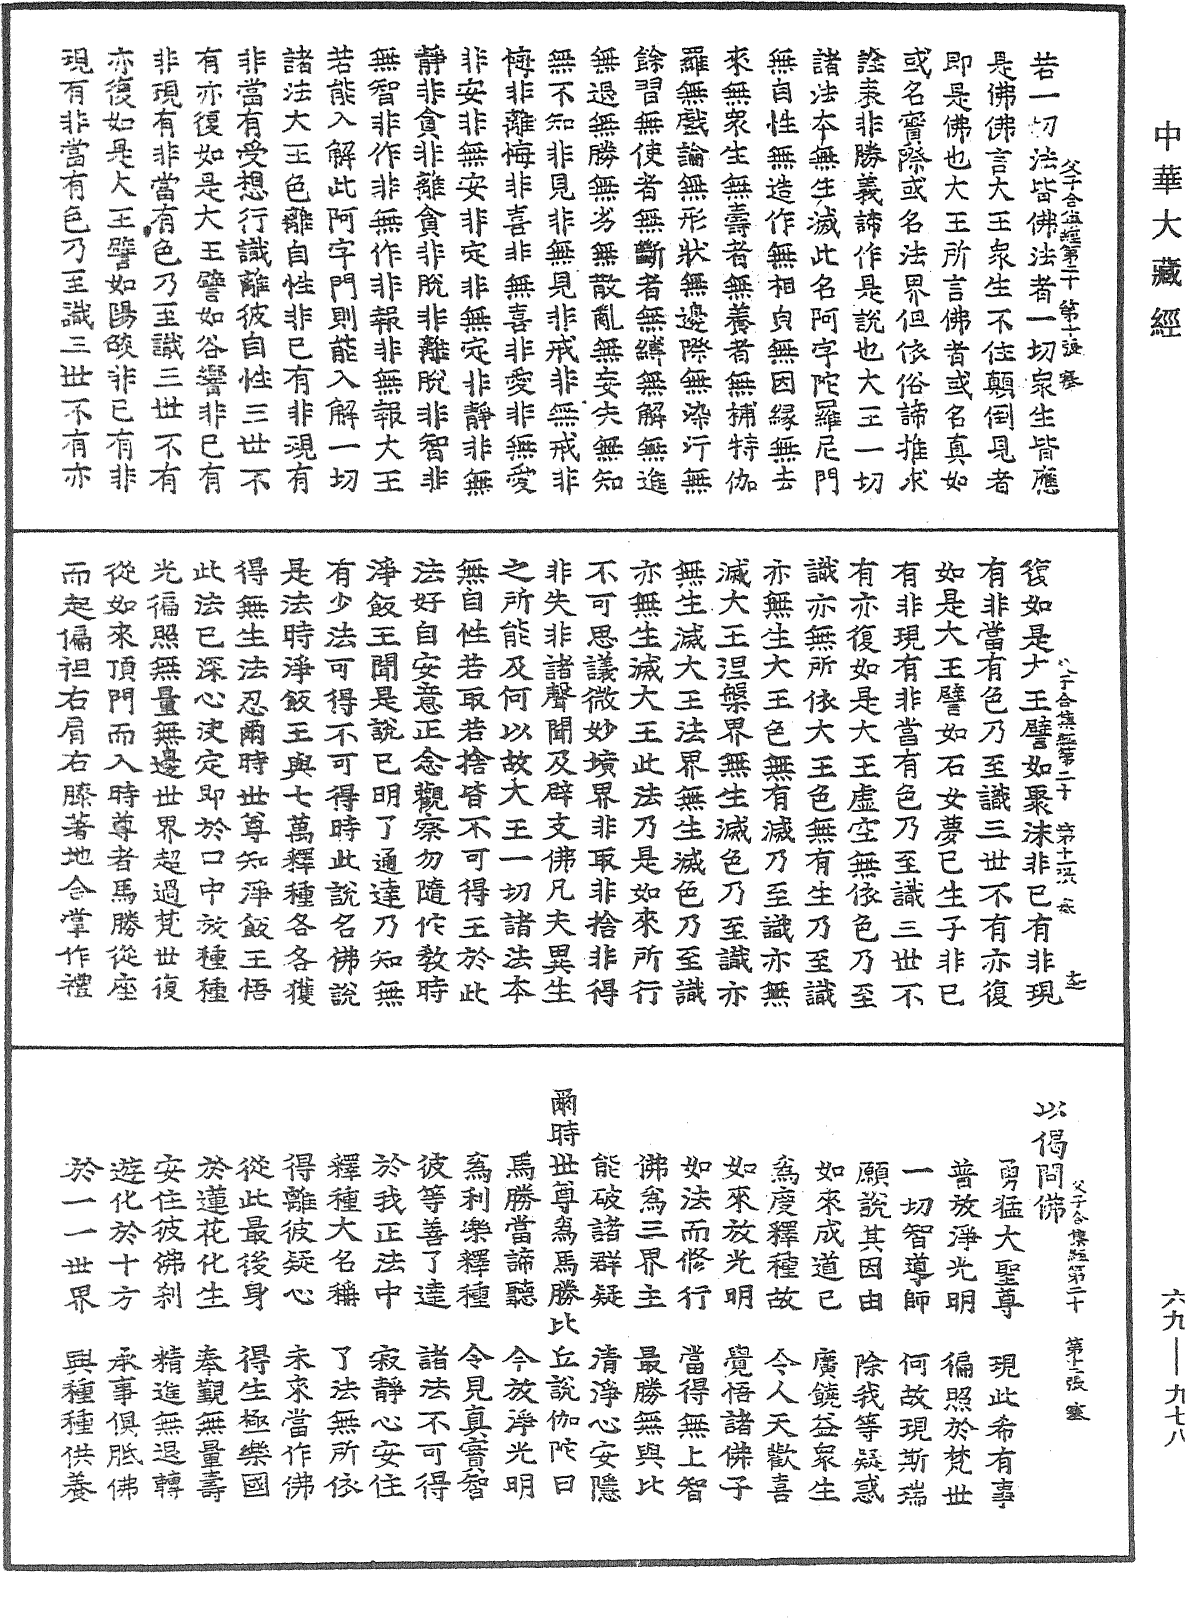 中華大藏經
父子合集經第二十 第十張 塞
若一切法皆佛法者一切衆生皆應
是佛佛言大王衆生不住顛倒見者
即是佛也大王所言佛者或名真如
或名實際或名法界但依俗諦推求
詮表非勝義諦作是說也大王一切
諸法本無生滅此名阿字陀羅尼門
無自性無造作無相貞無因緣無去
來無衆生無壽者無養者無補特伽
羅無戲論無形狀無邊際無染汙無
餘習無使者無斷者無縛無解無進
無退無勝無劣無散亂無妄失無知
無不知非見非無見非戒非無戒非
悔非離悔非喜非無喜非愛非無愛
非安非無安非定非無定非靜非無
靜非貪非離貪非脫非離脫非智非
無智非作非無作非報非無報大王
若能入解此阿字門則能入解一切
諸法大王色離自性非已有非現有
非當有受想行識離彼自性三世不
有亦復如是大王譬如谷響非已有
非現有非當有色乃至識三世不有
亦復如是大王譬如陽燄非已有非
現有非當有色乃至識三世不有亦
父子合集經第二十 第十一張 塞
復如是大王譬如聚沫非已有非現
有非當有色乃至識三世不有亦復
如是大王譬如石女夢已生子非已
有非現有非當有色乃至識三世不
有亦復如是大王虛空無依色乃至
識亦無所依大王色無有生乃至識
亦無生大王色無有滅乃至識亦無
滅大王涅槃界無生滅色乃至識亦
無生滅大王法界無生滅色乃至識
亦無生滅大王此法乃是如來所行
不可思議微妙境界非取非捨非得
非失非諸聲聞及辟支佛凡夫異生
之所能及何以故大王一切諸法本
無自性若取若捨皆不可得王於此
法好自安意正念觀察勿隨佗教時
淨飯王聞是說已明了通達乃知無
有少法可得不可得時此說名佛說
是法時淨飯王與七萬釋種各各獲
得無生法忍爾時世尊知淨飯王悟
此法已深心決定即於口中放種種
光徧照無量無邊世界超過梵世復
從如來頂門而入時尊者馬勝從座
而起偏袒右肩右膝著地合掌作禮
父子合集經第二十 第十二張 塞
以偈問佛
勇猛大聖尊 現此希有事
普放淨光明 徧照於梵世
一切智導師 何故現斯瑞
願說其因由 除我等疑惑
如來成道已 廣饒益衆生
為度釋種故 令人天歡喜
如來放光明 覺悟諸佛子
如法而修行 當得無上智
佛為三界主 最勝無與比
能破諸群疑 清淨心安隱
爾時世尊為馬勝比丘說伽陀曰
馬勝當諦聽 今放淨光明
為利樂釋種 令見真實智
彼等善了達 諸法不可得
於我正法中 寂靜心安住
釋種大名稱 了法無所依
得離彼疑心 未來當作佛
從此最後身 得生極樂國
於蓮花化生 奉覲無量壽
安住彼佛刹 精進無退轉
遊化於十方 承事俱胝佛
於一一世界 興種種供養
六九—九七八